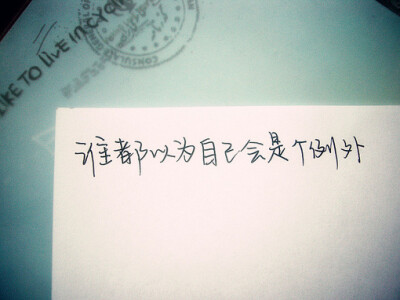 LIKE TO LIVE IN CYCL
CONSULAR
谁都以为自己会是个例外